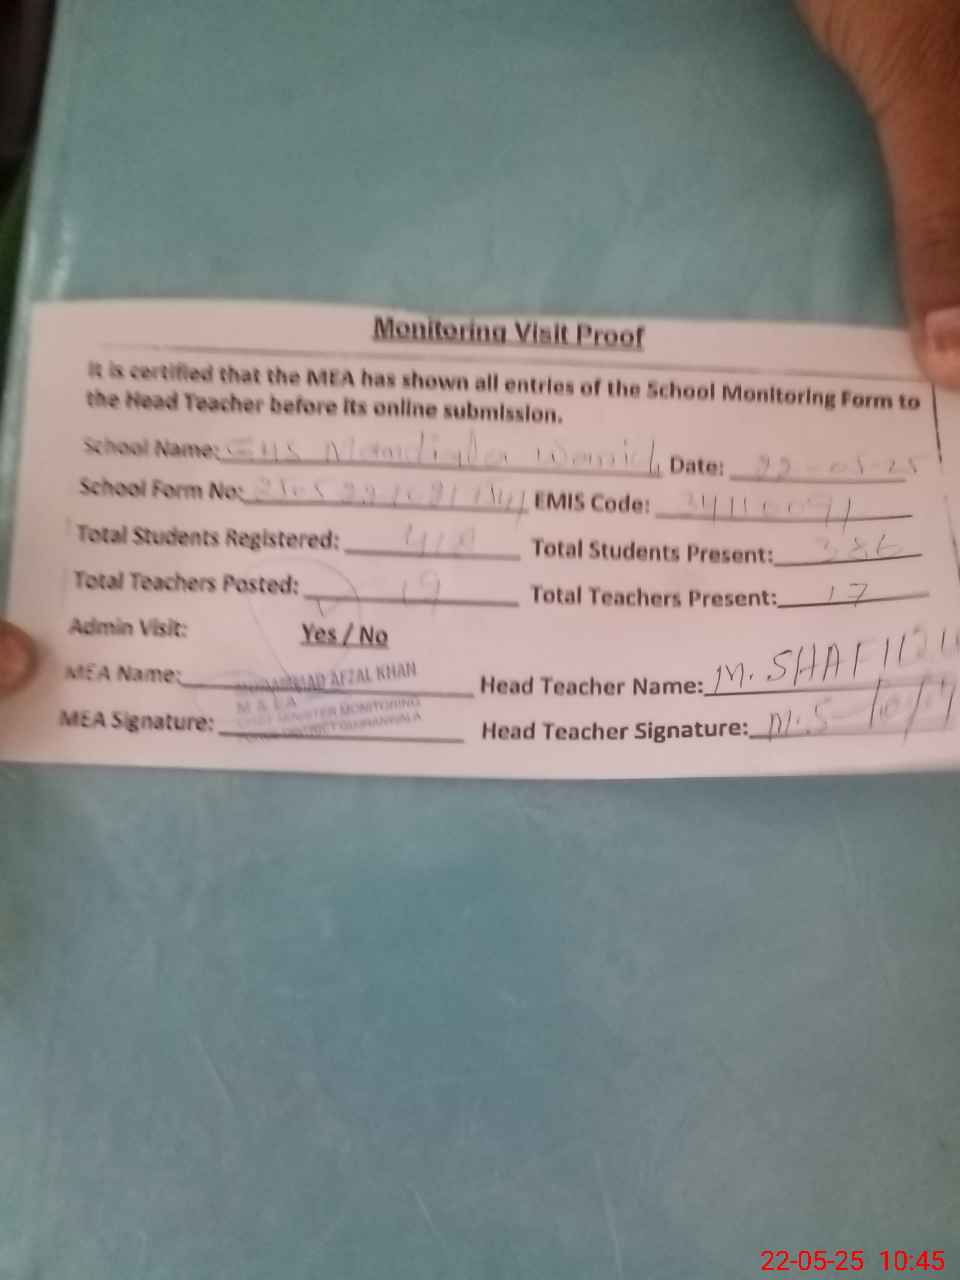 Monitoring Visit Proof
It is certified that the MEA has shown all entries of the School Monitoring Form to
the Head Teacher before its online submission.
School Name: GHS Date: 22-05-25
School Form No: EMIS Code:
Total Students Registered: Total Students Present: 386
Total Teachers Posted: 19 Total Teachers Present: 17
Admin Visit: Yes / No
MEA Name: AFZAL KHAN Head Teacher Name: M. SHAFIQ
M.E.A
MINISTER MONITORING
MEA Signature: DISTRICT GUJRANWALA Head Teacher Signature: M.S
22-05-25 10:45